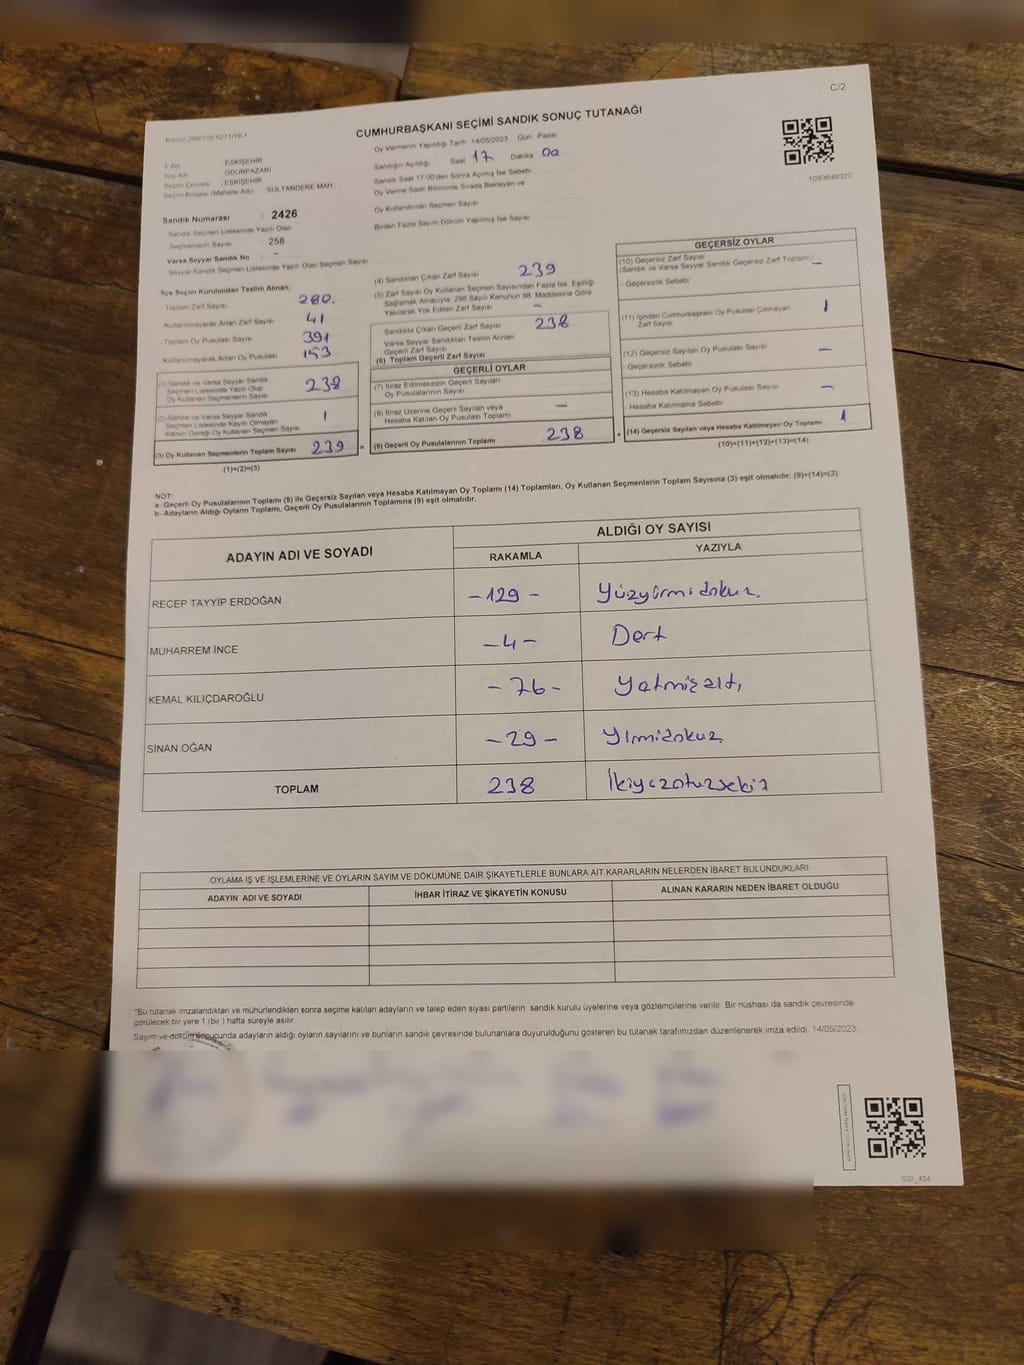 C/2
Kanun 298/105 6271/18-1
CUMHURBAŞKANI SEÇİMİ SANDIK SONUÇ TUTANAĞI
1093649320
İl Adı : ESKİŞEHİR
İlçe Adı : ODUNPAZARI
Seçim Çevresi : ESKİŞEHİR
Seçim Bölgesi (Mahalle Adı) : SULTANDERE MAH.
Sandık Numarası : 2426
Sandık Seçmen Listesinde Yazılı Olan
Seçmenlerin Sayısı : 258
Varsa Seyyar Sandık No : -
Seyyar Sandık Seçmen Listesinde Yazılı Olan Seçmen Sayısı
İlçe Seçim Kurulundan Teslim Alınan;
- Toplam Zarf Sayısı 280.
- Kullanılmayarak Artan Zarf Sayısı 41
- Toplam Oy Pusulası Sayısı 391
- Kullanılmayarak Artan Oy Pusulası 153
(1) Sandık ve Varsa Seyyar Sandık
Seçmen Listesinde Yazılı Olup
Oy Kullanan Seçmenlerin Sayısı 238
(2) Sandık ve Varsa Seyyar Sandık
Seçmen Listesinde Kayıtlı Olmayan
Kanun Gereği Oy Kullanan Seçmen Sayısı 1
(3) Oy Kullanan Seçmenlerin Toplam Sayısı 239 =
(1)+(2)=(3)
Oy Vermenin Yapıldığı Tarih 14/05/2023 Gün Pazar
Sandığın Açıldığı Saat 17 Dakika 00
Sandık Saat 17:00'den Sonra Açılmış İse Sebebi
Oy Verme Saati Bitiminde Sırada Bekleyen ve
Oy Kullandırılan Seçmen Sayısı
Birden Fazla Sayım Döküm Yapılmış İse Sayısı
(4) Sandıktan Çıkan Zarf Sayısı 239
(5) Zarf Sayısı Oy Kullanan Seçmen Sayısından Fazla İse, Eşitliği
Sağlamak Amacıyla; 298 Sayılı Kanunun 98. Maddesine Göre
Yakılarak Yok Edilen Zarf Sayısı -
Sandıkta Çıkan Geçerli Zarf Sayısı 238
Varsa Seyyar Sandıktan Teslim Alınan
Geçerli Zarf Sayısı
(6) Toplam Geçerli Zarf Sayısı
GEÇERLİ OYLAR
(7) İtiraz Edilmeksizin Geçerli Sayılan
Oy Pusulalarının Toplamı
(8) İtiraz Üzerine Geçerli Sayılan veya
Hesaba Katılan Oy Pusulası Toplamı -
(9) Geçerli Oy Pusulalarının Toplamı 238 +
GEÇERSİZ OYLAR
(10) Geçersiz Zarf Sayısı
(Sandık ve Varsa Seyyar Sandık Geçersiz Zarf Toplamı) -
- Geçersizlik Sebebi
(11) İçinden Cumhurbaşkanı Oy Pusulası Çıkmayan
Zarf Sayısı 1
(12) Geçersiz Sayılan Oy Pusulası Sayısı -
- Geçersizlik Sebebi
(13) Hesaba Katılmayan Oy Pusulası Sayısı -
- Hesaba Katılmama Sebebi
(14) Geçersiz Sayılan veya Hesaba Katılmayan Oy Toplamı 1
(10)+(11)+(12)+(13)=(14)
NOT:
a- Geçerli Oy Pusulalarının Toplamı (9) ile Geçersiz Sayılan veya Hesaba Katılmayan Oy Toplamı (14) Toplamları, Oy Kullanan Seçmenlerin Toplam Sayısına (3) eşit olmalıdır. (9)+(14)=(3)
b- Adayların Aldığı Oyların Toplamı, Geçerli Oy Pusulalarının Toplamına (9) eşit olmalıdır.
ADAYIN ADI VE SOYADI
ALDIĞI OY SAYISI
RAKAMLA YAZIYLA
RECEP TAYYİP ERDOĞAN -129- Yüzyirmidokuz
MUHARREM İNCE -4- Dört
KEMAL KILIÇDAROĞLU -76- Yetmişaltı
SİNAN OĞAN -29- Yirmidokuz
TOPLAM 238 İkiyüzotuzsekiz
OYLAMA İŞ VE İŞLEMLERİNE VE OYLARIN SAYIM VE DÖKÜMÜNE DAİR ŞİKAYETLERLE BUNLARA AİT KARARLARIN NELERDEN İBARET BULUNDUKLARI
ADAYIN ADI VE SOYADI İHBAR İTİRAZ VE ŞİKAYETİN KONUSU ALINAN KARARIN NEDEN İBARET OLDUĞU
*Bu tutanak imzalandıktan ve mühürlendikten sonra seçime katılan adayların ve talep eden siyasi partilerin sandık kurulu üyelerine veya gözlemcilerine verilir. Bir nüshası da sandık çevresinde
görülecek bir yere 1 (bir) hafta süreyle asılır.
Sayım ve döküm sonucunda adayların aldığı oyların sayılarını ve bunların sandık çevresinde bulunanlara duyurulduğunu gösteren bu tutanak tarafımızdan düzenlenerek imza edildi. 14/05/2023
SSI_404